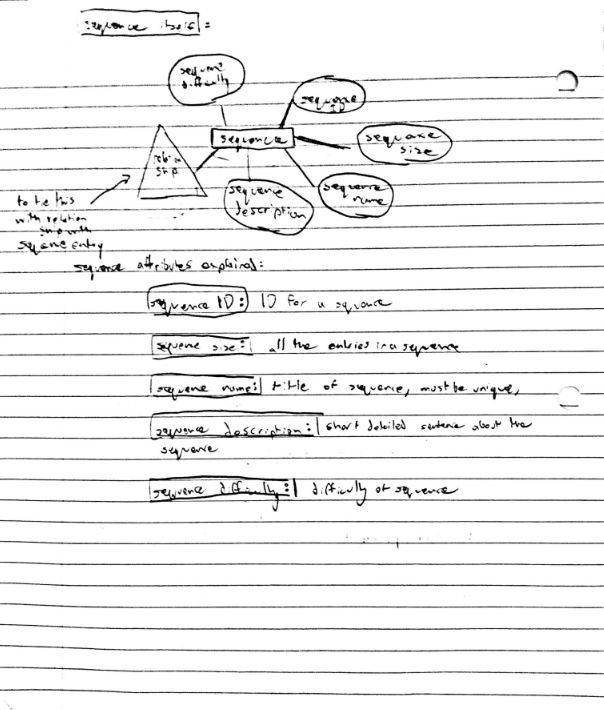 sequence itself =
sequence
difficulty
sequence
ID
sequence
sequence
size
relation
ship
sequence
name
sequence
description
to tie this
with relation
ship with
sequence entry
sequence attributes explained:
sequence ID: ID for a sequence
sequence size: all the entries in a sequence
sequence name: title of sequence, must be unique,
sequence description: short detailed sentence about the
sequence
sequence difficulty: difficulty of sequence